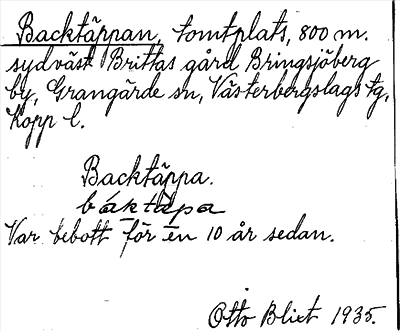 Backtäppan, tomtplats, 800 m.
sydväst Brittas gård Bringsjöberg
by, Grangärde sn, Västerbergslags tg,
Kopp l.
Backtäppa.
báktäpa
Var bebott för en 10 år sedan.
Otto Blixt 1935.